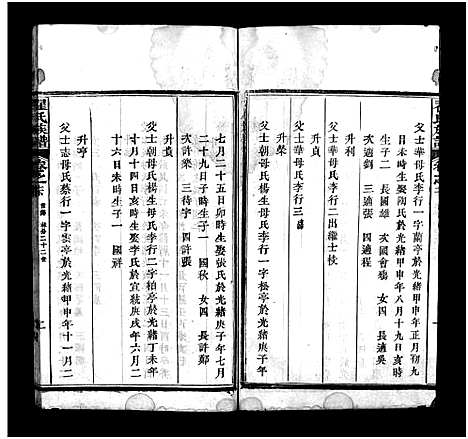 父士華母氏李行一字蘭亭於光緒甲申年正月初九
日未時生娶陶氏於光緒甲申年八月十九日亥時
生子二　長國雄　次國會殤　女四　長適吳
次適劉　三適張　四適程
升利
父士華母氏李行二出繼士枝
升貞
父士華母氏李行三殤
升榮
父士朝母氏楊生母氏李行一字松亭於光緒庚子年
七月二十五日卯時生娶張氏於光緒庚子年七月
二十九日子時生子一　國秋　女四　長許鄭
次許梁　三待字　四許張
升貴
父士朝母氏楊生母氏李行二字柏亭於光緒丁未年
十月十四日亥時生娶李氏於宣統庚戌年六月二
十六日未時生子一　國祥
升亨
父士志母氏蔡行一字雲亭於光緒甲申年十一月二
翟氏族譜